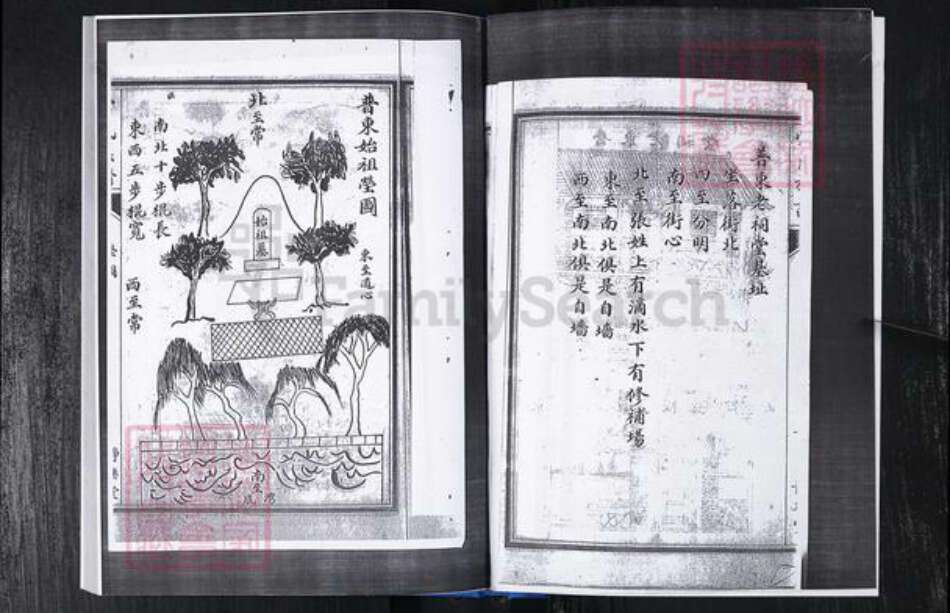 普東老祠堂基址
坐落街北
西至分明
南至街心
北至張姓上有滴水下有修補場
東至南北俱是自墻
西至南北俱是自墻
普東始祖塋圖
北至常
東至道心
始祖墓
南北十步棍長
東西五步棍寬
西至常
南至
灣
FamilySearch